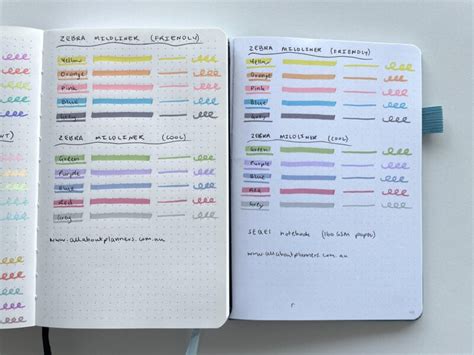 ZEBRA MILDLINER (FRIENDLY)
Yellow
Orange
Pink
Blue
Grey
ZEBRA MILDLINER (COOL)
Green
Purple
Blue
Red
Grey
www.allaboutplanners.com.au
ZEBRA MILDLINER (FRIENDLY)
Yellow
Orange
Pink
Blue
Grey
ZEBRA MILDLINER (COOL)
Green
Purple
Blue
Red
Grey
notebook (160 GSM paper)
www.allaboutplanners.com.au